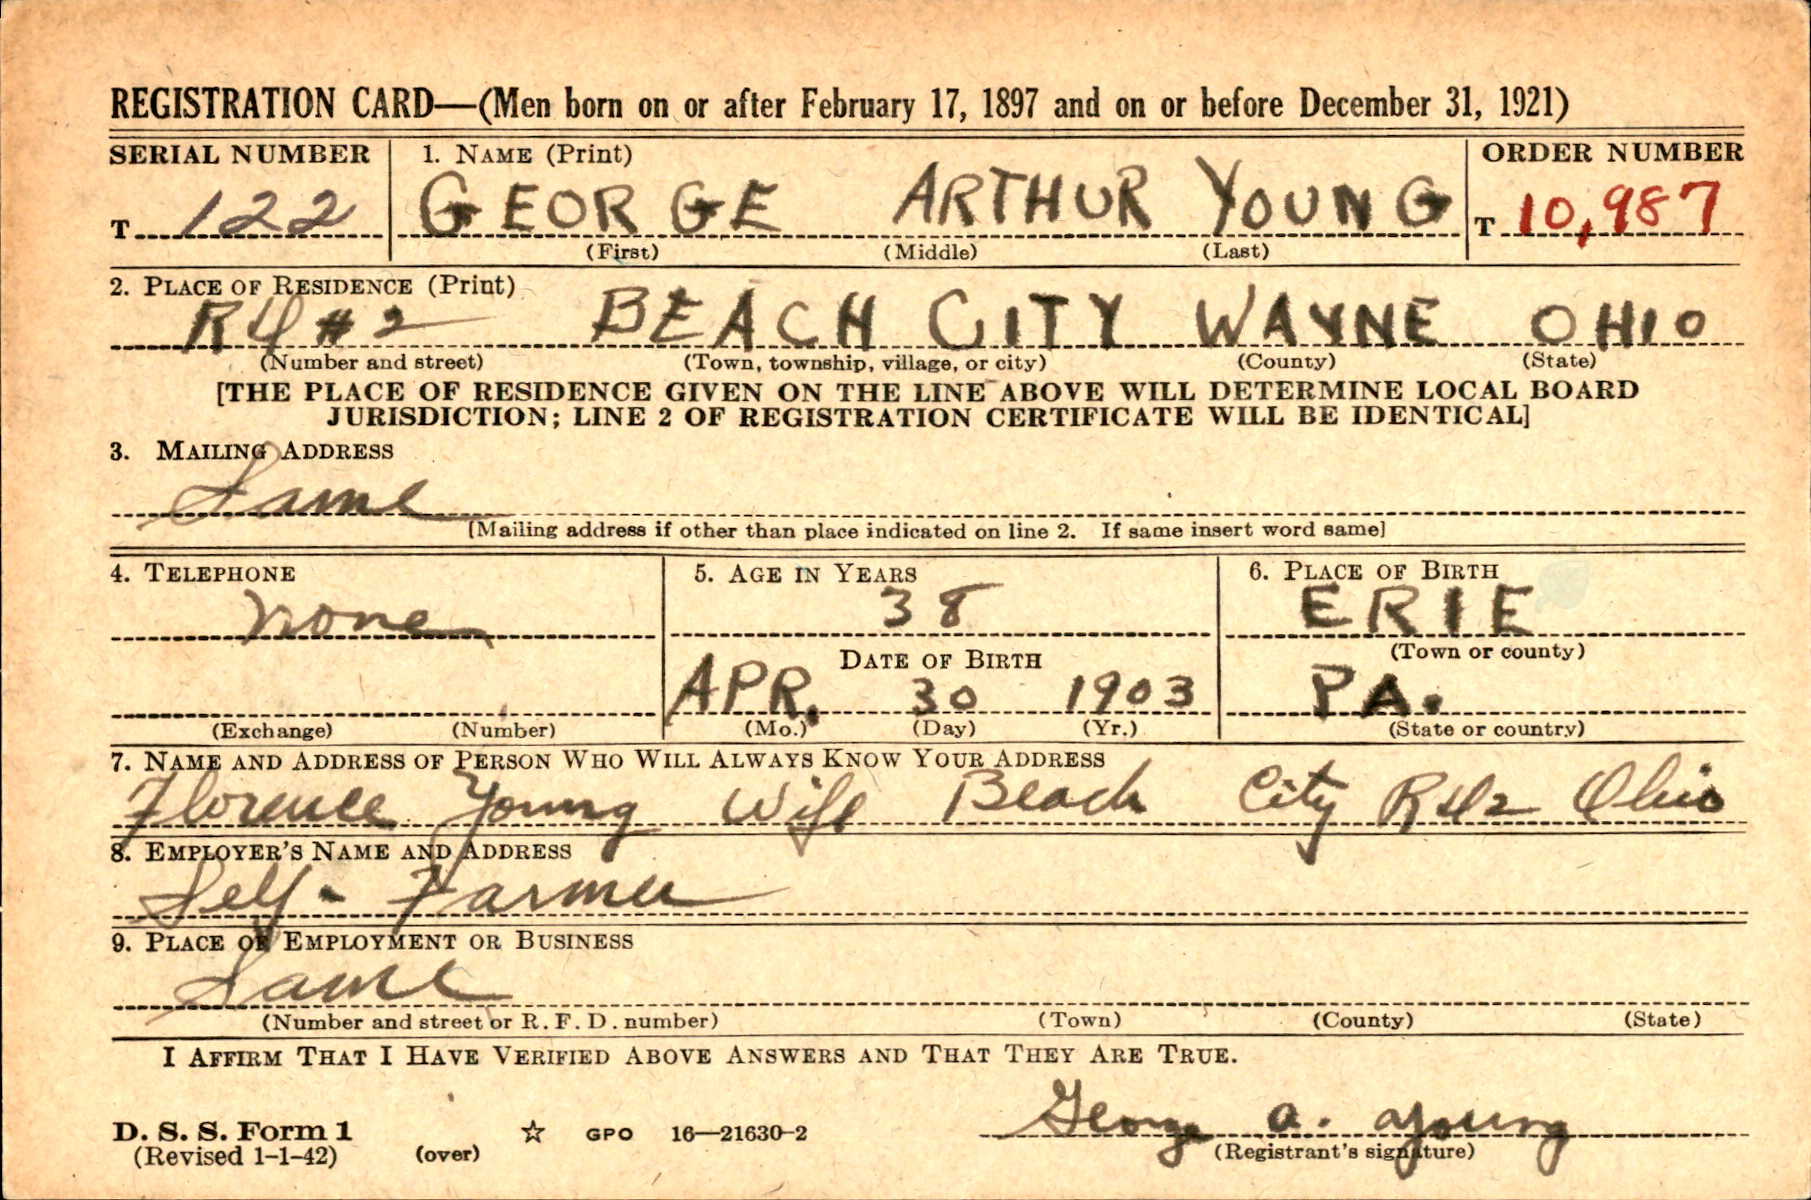 REGISTRATION CARD—(Men born on or after February 17, 1897 and on or before December 31, 1921)
SERIAL NUMBER 1. NAME (Print) ORDER NUMBER
T 122 GEORGE ARTHUR YOUNG T 10,987
(First) (Middle) (Last)
2. PLACE OF RESIDENCE (Print)
R4 #2 BEACH CITY WAYNE OHIO
(Number and street) (Town, township, village, or city) (County) (State)
[THE PLACE OF RESIDENCE GIVEN ON THE LINE ABOVE WILL DETERMINE LOCAL BOARD
JURISDICTION; LINE 2 OF REGISTRATION CERTIFICATE WILL BE IDENTICAL]
3. MAILING ADDRESS
Same
[Mailing address if other than place indicated on line 2. If same insert word same]
4. TELEPHONE 5. AGE IN YEARS 6. PLACE OF BIRTH
None 38 ERIE
DATE OF BIRTH (Town or county)
APR. 30 1903 PA.
(Exchange) (Number) (Mo.) (Day) (Yr.) (State or country)
7. NAME AND ADDRESS OF PERSON WHO WILL ALWAYS KNOW YOUR ADDRESS
Florence Young Wife Beach City R42 Ohio
8. EMPLOYER'S NAME AND ADDRESS
Self - Farmer
9. PLACE OF EMPLOYMENT OR BUSINESS
Same
(Number and street or R. F. D. number) (Town) (County) (State)
I AFFIRM THAT I HAVE VERIFIED ABOVE ANSWERS AND THAT THEY ARE TRUE.
George A. Young
D. S. S. Form 1 GPO 16—21630-2
(Revised 1-1-42) (over) (Registrant's signature)